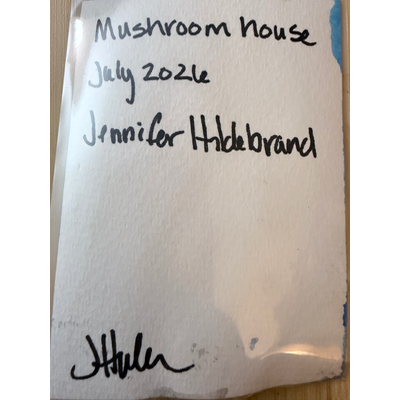 Mushroom house
July 2026
Jennifer Hildebrand